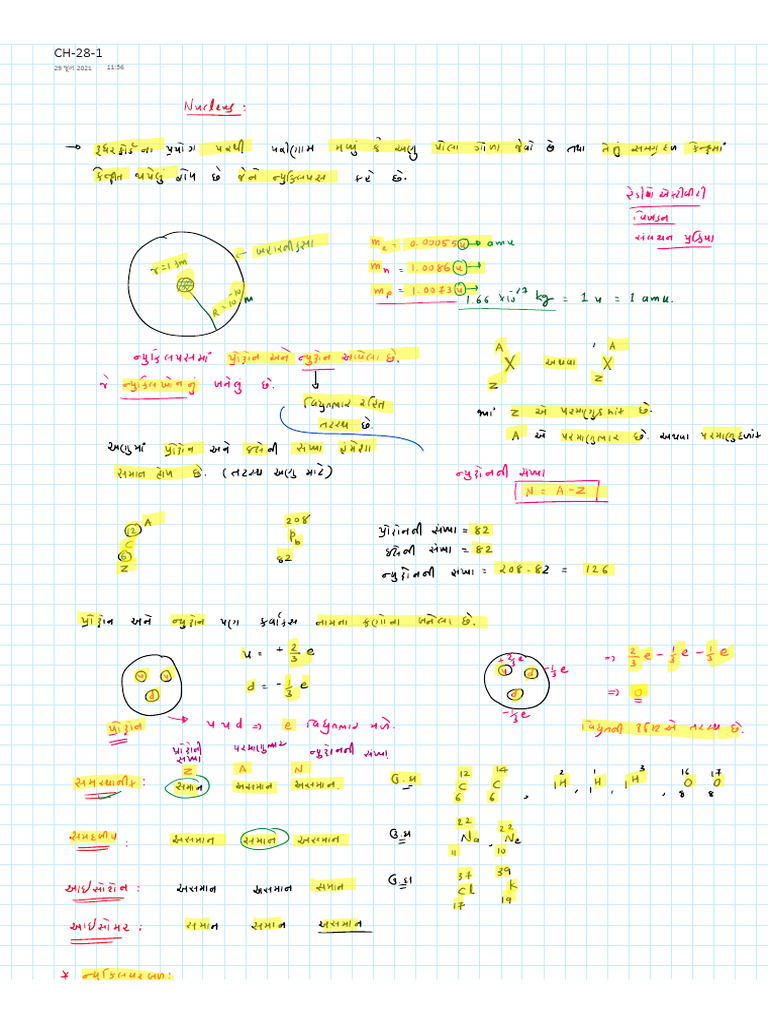 CH-28-1
29 જૂન 2021 11:56
Nucleus :
→ રૂધરફોર્ડના પ્રયોગ પરથી પરિણામ મળ્યું કે અણુ પોલા ગોળા જેવો છે તથા તેનું સમગ્ર દળ કેન્દ્રમાં
કેન્દ્રીત થયેલું હોય છે જેને ન્યુક્લિયસ કહે છે.
રેડીયો એક્ટીવીટી
વિખંડન
સંલયન પ્રક્રિયા
r = 1 fm
R = 10^-10 m
m_e = 0.00055 u → amu
m_n = 1.0086 u →
m_p = 1.0073 u →
1.66 × 10^-27 kg = 1 u = 1 amu.
ન્યુક્લિયસમાં પ્રોટોન અને ન્યુટ્રોન આવેલા છે.
જે ન્યુક્લિઓનનું બનેલું છે.
વિદ્યુતભાર રહિત
તટસ્થ છે.
A X Z અથવા A X Z
જ્યાં Z એ પરમાણુક્રમાંક છે.
A એ પરમાણુભાર છે. અથવા પરમાણુદળાંક
અણુમાં પ્રોટોન અને ઇલે.ની સંખ્યા હંમેશા
સમાન હોય છે. (તટસ્થ અણુ માટે)
ન્યુટ્રોનની સંખ્યા
N = A - Z
12 A C 6 Z
208 Pb 82
પ્રોટોનની સંખ્યા = 82
ઇલે.ની સંખ્યા = 82
ન્યુટ્રોનની સંખ્યા = 208 - 82 = 126
પ્રોટોન અને ન્યુટ્રોન પણ ક્વાર્કસ નામના કણોના બનેલા છે.
u = + 2/3 e
d = - 1/3 e
u u d
+2/3 e -1/3 e
u d d
-1/3 e
⇒ 2/3 e - 1/3 e - 1/3 e
⇒ 0
પ્રોટોન → u u d ⇒ e વિદ્યુતભાર મળે.
વિદ્યુતની દ્રષ્ટિએ તટસ્થ છે.
પ્રોટોનની સંખ્યા પરમાણુભાર ન્યુટ્રોનની સંખ્યા
Z A N
સમસ્થાનીક : સમાન અસમાન અસમાન. ઉ.દા 12 C 6 14 C 6 , 2 H 1 , 1 H 1 , 3 H 1 , 16 O 8 17 O 8
સમદળીય : અસમાન સમાન અસમાન ઉ.દા 22 Na 11 , 22 Ne 10
આઇસોટોન : અસમાન અસમાન સમાન ઉ.દા 37 Cl 17 39 K 19
આઇસોમર : સમાન સમાન અસમાન
* ન્યુક્લિયર બળ :